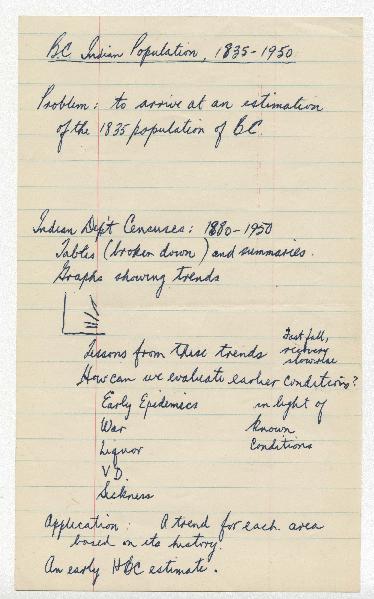 BC Indian Population, 1835-1950
Problem: to arrive at an estimation
of the 1835 population of BC.
Indian Dep't Censuses: 1880-1950
Tables (broken down) and summaries.
Graphs showing trends
Lessons from these trends
Fast fall,
recovery
slow rise
How can we evaluate earlier conditions?
Early Epidemics in light of
War known
Liquor conditions
V.D.
Sickness
Application: A trend for each area
based on its history.
An early HBC estimate.